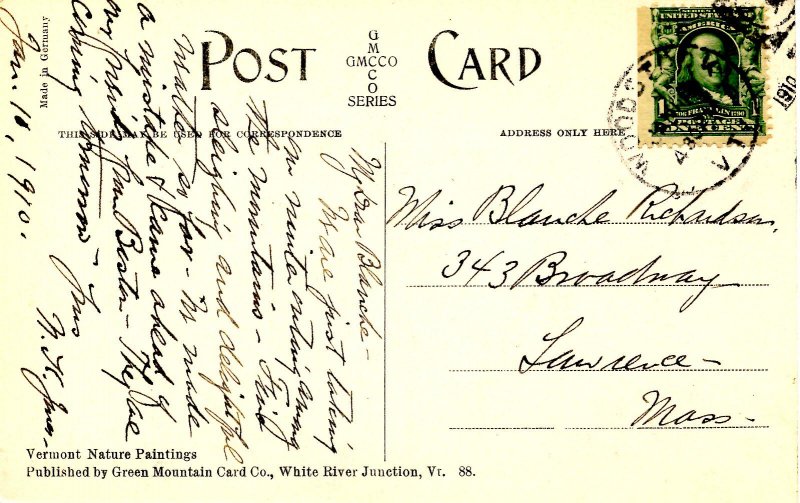 POST CARD
G
M
GMCCO
C
O
SERIES
Made in Germany
THIS SIDE MAY BE USED FOR CORRESPONDENCE
ADDRESS ONLY HERE
SERIES 1902
UNITED STATES OF
AMERICA
1706 FRANKLIN 1790
POSTAGE
1 ONE CENT 1
WOODSTOCK
VT
1910
Miss Blanche Richardson,
343 Broadway
Lawrence -
Mass -
My Dear Blanche -
We are just taking
our winter outing among
the mountains - Find
sleighing and delightful
weather so far - We made
a mistake & came ahead of
our friends from Boston - They are
coming tomorrow -
Jan. 10, 1910.
Vermont Nature Paintings
Published by Green Mountain Card Co., White River Junction, Vt. 88.